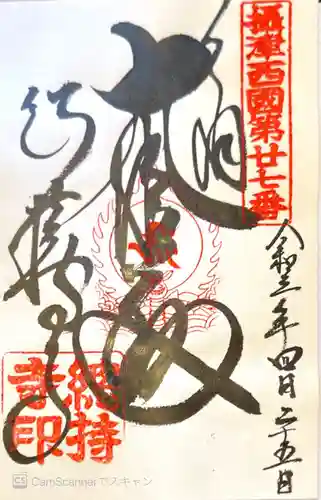 攝津西國第廿七番
奉拝
大悲殿
総持寺
令和三年四月二十五日
總持寺印
CS CamScannerでスキャン